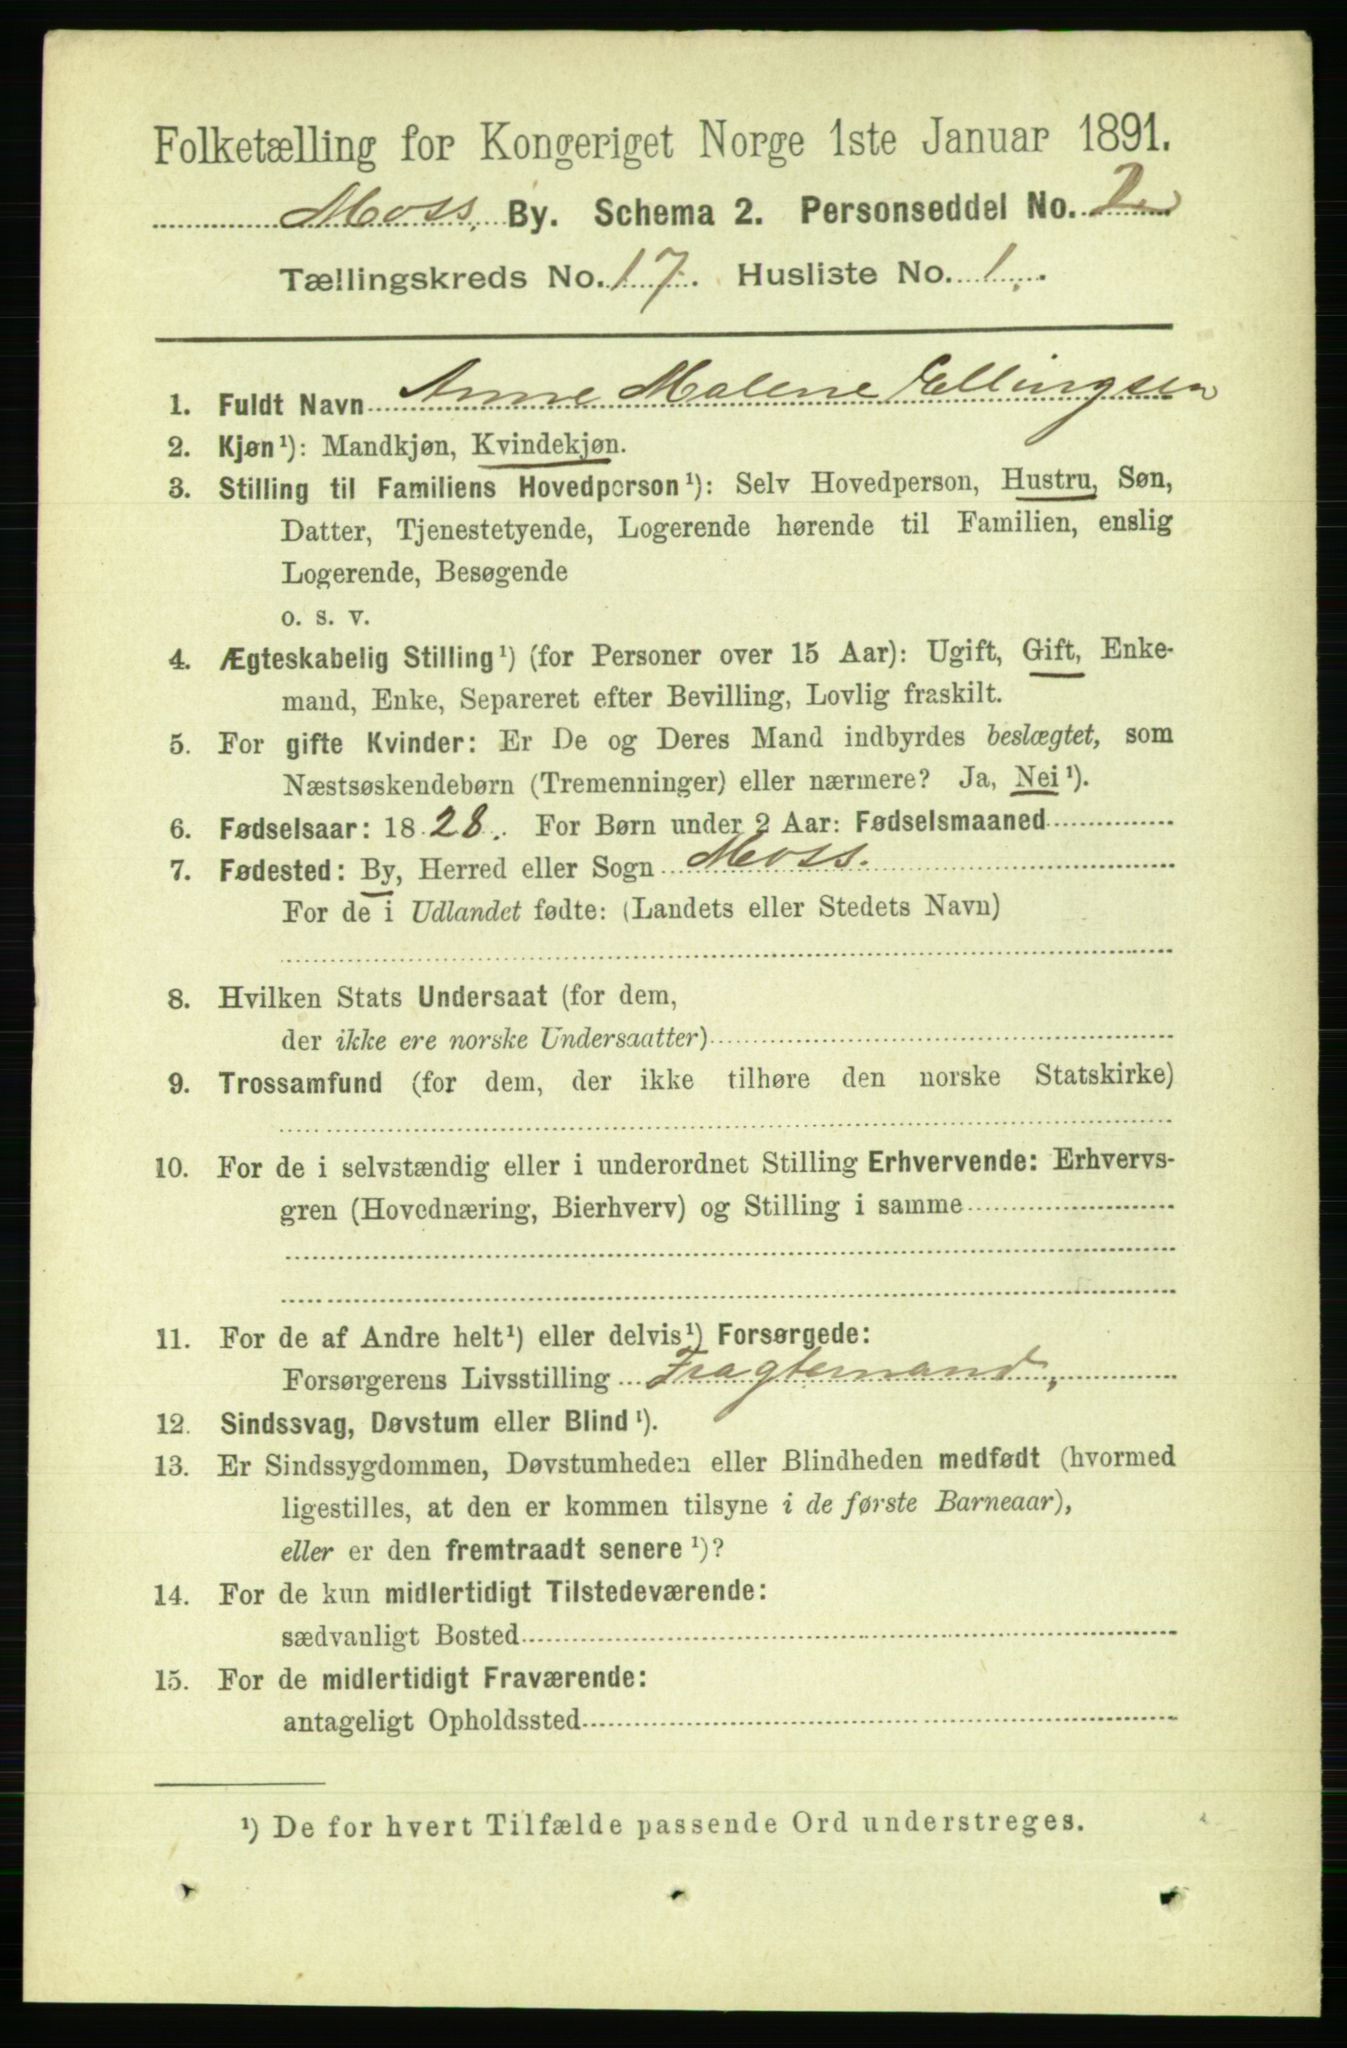 Folketælling for Kongeriget Norge 1ste Januar 1891.
Moss. By. Schema 2. Personseddel No. 2
Tællingskreds No. 17. Husliste No. 1.
1. Fuldt Navn Anne Malene Ellingsen
2. Kjøn¹): Mandkjøn, Kvindekjøn.
3. Stilling til Familiens Hovedperson¹): Selv Hovedperson, Hustru, Søn,
Datter, Tjenestetyende, Logerende hørende til Familien, enslig
Logerende, Besøgende
o. s. v.
4. Ægteskabelig Stilling¹) (for Personer over 15 Aar): Ugift, Gift, Enke-
mand, Enke, Separeret efter Bevilling, Lovlig fraskilt.
5. For gifte Kvinder: Er De og Deres Mand indbyrdes beslægtet, som
Næstsøskendebørn (Tremenninger) eller nærmere? Ja, Nei¹).
6. Fødselsaar: 1828. For Børn under 2 Aar: Fødselsmaaned
7. Fødested: By, Herred eller Sogn Moss.
For de i Udlandet fødte: (Landets eller Stedets Navn)
8. Hvilken Stats Undersaat (for dem,
der ikke ere norske Undersaatter)
9. Trossamfund (for dem, der ikke tilhøre den norske Statskirke)
10. For de i selvstændig eller i underordnet Stilling Erhvervende: Erhvervs-
gren (Hovednæring, Bierhverv) og Stilling i samme
11. For de af Andre helt¹) eller delvis¹) Forsørgede:
Forsørgerens Livsstilling Fragtemand,
12. Sindssvag, Døvstum eller Blind¹).
13. Er Sindssygdommen, Døvstumheden eller Blindheden medfødt (hvormed
ligestilles, at den er kommen tilsyne i de første Barneaar),
eller er den fremtraadt senere¹)?
14. For de kun midlertidigt Tilstedeværende:
sædvanligt Bosted
15. For de midlertidigt Fraværende:
antageligt Opholdssted
¹) De for hvert Tilfælde passende Ord understreges.